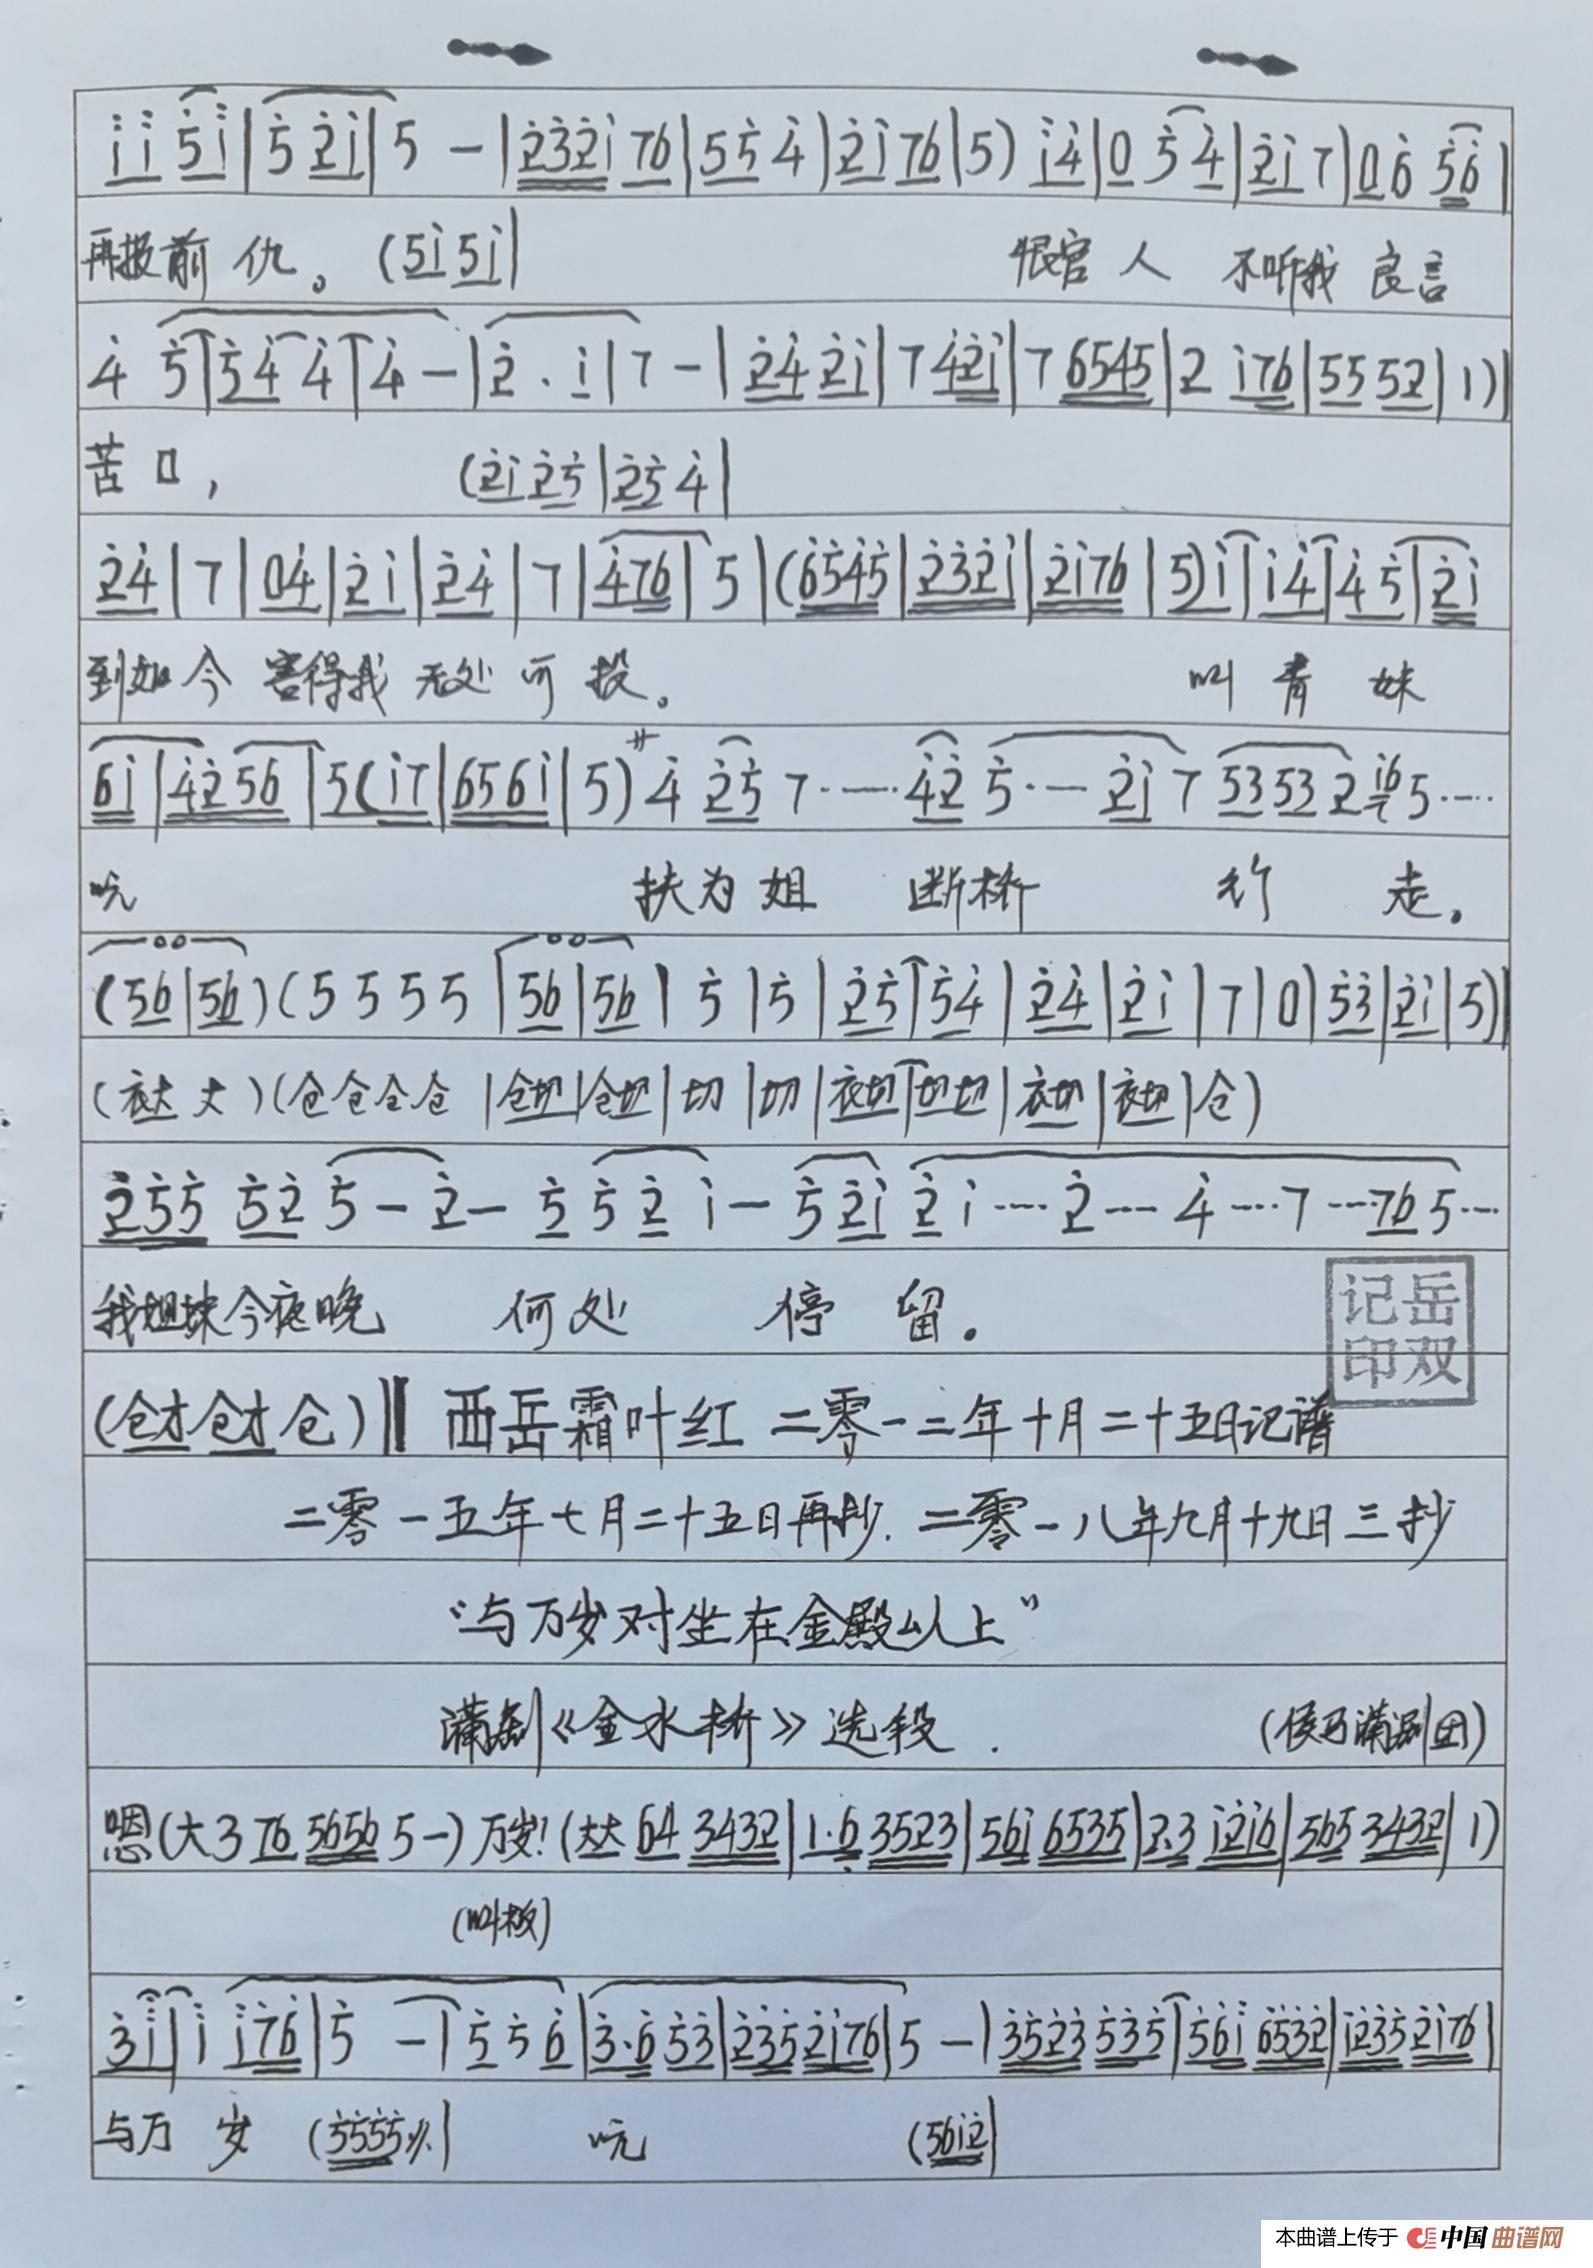 i i 5 i | 5 2 i | 5 - | 2 3 2 i 7 6 | 5 5 4 | 2 i 7 6 | 5) i 4 | 0 5 4 | 2 i 7 | 0 6 5 6 |
再报前仇。(5 i 5 i | 恨官人 不听我 良言
4 5 | 5 4 4 | 4 - | 2 . i | 7 - | 2 4 2 i | 7 4 2 i | 7 6 5 4 5 | 2 i 7 6 | 5 5 5 2 | 1) |
苦口, (2 i 2 5 | 2 5 4 |
2 4 | 7 | 0 4 | 2 i | 2 4 | 7 | 4 7 6 | 5 | (6 5 4 5 | 2 3 2 i | 2 i 7 6 | 5) i | i 4 | 4 5 | 2 i
到如今 害得我 无处可投。 叫青妹
6 i | 4 2 5 6 | 5 (i 7 | 6 5 6 i | 5) 4 2 5 7 ·—— 4 2 5 ·— 2 i 7 5 3 5 3 2 i6 5 ·—
吭 扶为姐 断桥 行 走。
(5 6 | 5 6) (5 5 5 5 | 5 6 | 5 6 | 5 | 5 | 2 5 | 5 4 | 2 4 | 2 i | 7 | 0 | 5 3 | 2 i | 5) |
(衣大 大) (仓仓仓仓 | 仓切 | 仓切 | 切 | 切 | 衣切 | 切切 | 衣切 | 衣切 | 仓)
2 5 5 5 2 5 - 2 - 5 5 2 i - 5 2 i 2 i ···· 2 --- 4 ···· 7 --- 7 6 5 ····
我姐妹今夜晚 何处 停 留。
记岳
印双
(仓才仓才仓) ‖ 西岳霜叶红 二零一二年十月二十五日记谱
二零一五年七月二十五日再抄. 二零一八年九月十九日三抄
“与万岁对坐在金殿以上”
蒲剧《金水桥》选段. (侯马蒲剧团)
嗯(大 3 7 6 5 6 5 6 5 -) 万岁! (大大 6 4 3 4 3 2 | 1 · 6 3 5 2 3 | 5 6 i 6 5 3 5 | 2 · 3 i 2 i 6 | 5 6 5 3 4 3 2 | 1)
(叫板)
3 i | i i 7 6 | 5 - | 5 5 6 | 3 · 6 5 3 | 2 3 5 2 i 7 6 | 5 - | 3 5 2 3 5 3 5 | 5 6 i 6 5 3 2 | i 2 3 5 2 i 7 6 |
与万 岁 (5 5 5 5 ∥. | 吭 (5 6 i 2 |
本曲谱上传于 中国曲谱网